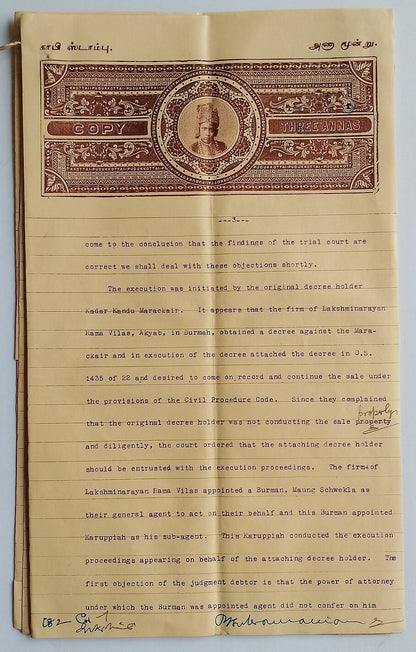 காபி ஸ்டாம்பு.
அணா மூன்று.
COPY
THREE ANNAS
--3---
come to the conclusion that the findings of the trial court are
correct we shall deal with these objections shortly.
The execution was initiated by the original decree holder
Kader Kandu Marackair. It appears that the firm of Lakshminarayan
Rama Vilas, Akyab, in Burmah, obtained a decree against the Mara-
ckair and in execution of the decree attached the decree in O.S.
1435 of 22 and desired to come on record and continue the sale under
the provisions of the Civil Procedure Code. Since they complained
properly
that the original decree holder was not conducting the sale property
and diligently, the court ordered that the attaching decree holder
should be entrusted with the execution proceedings. The firm of
Lakshminarayan Rama Vilas appointed a Burman, Maung Schwekla as
their general agent to act on their behalf and this Burman appointed
Karuppiah as his sub-agent. This Karuppiah conducted the execution
proceedings appearing on behalf of the attaching decree holder. The
first objection of the judgment debtor is that the power of attorney
under which the Burman was appointed agent did not confer on him